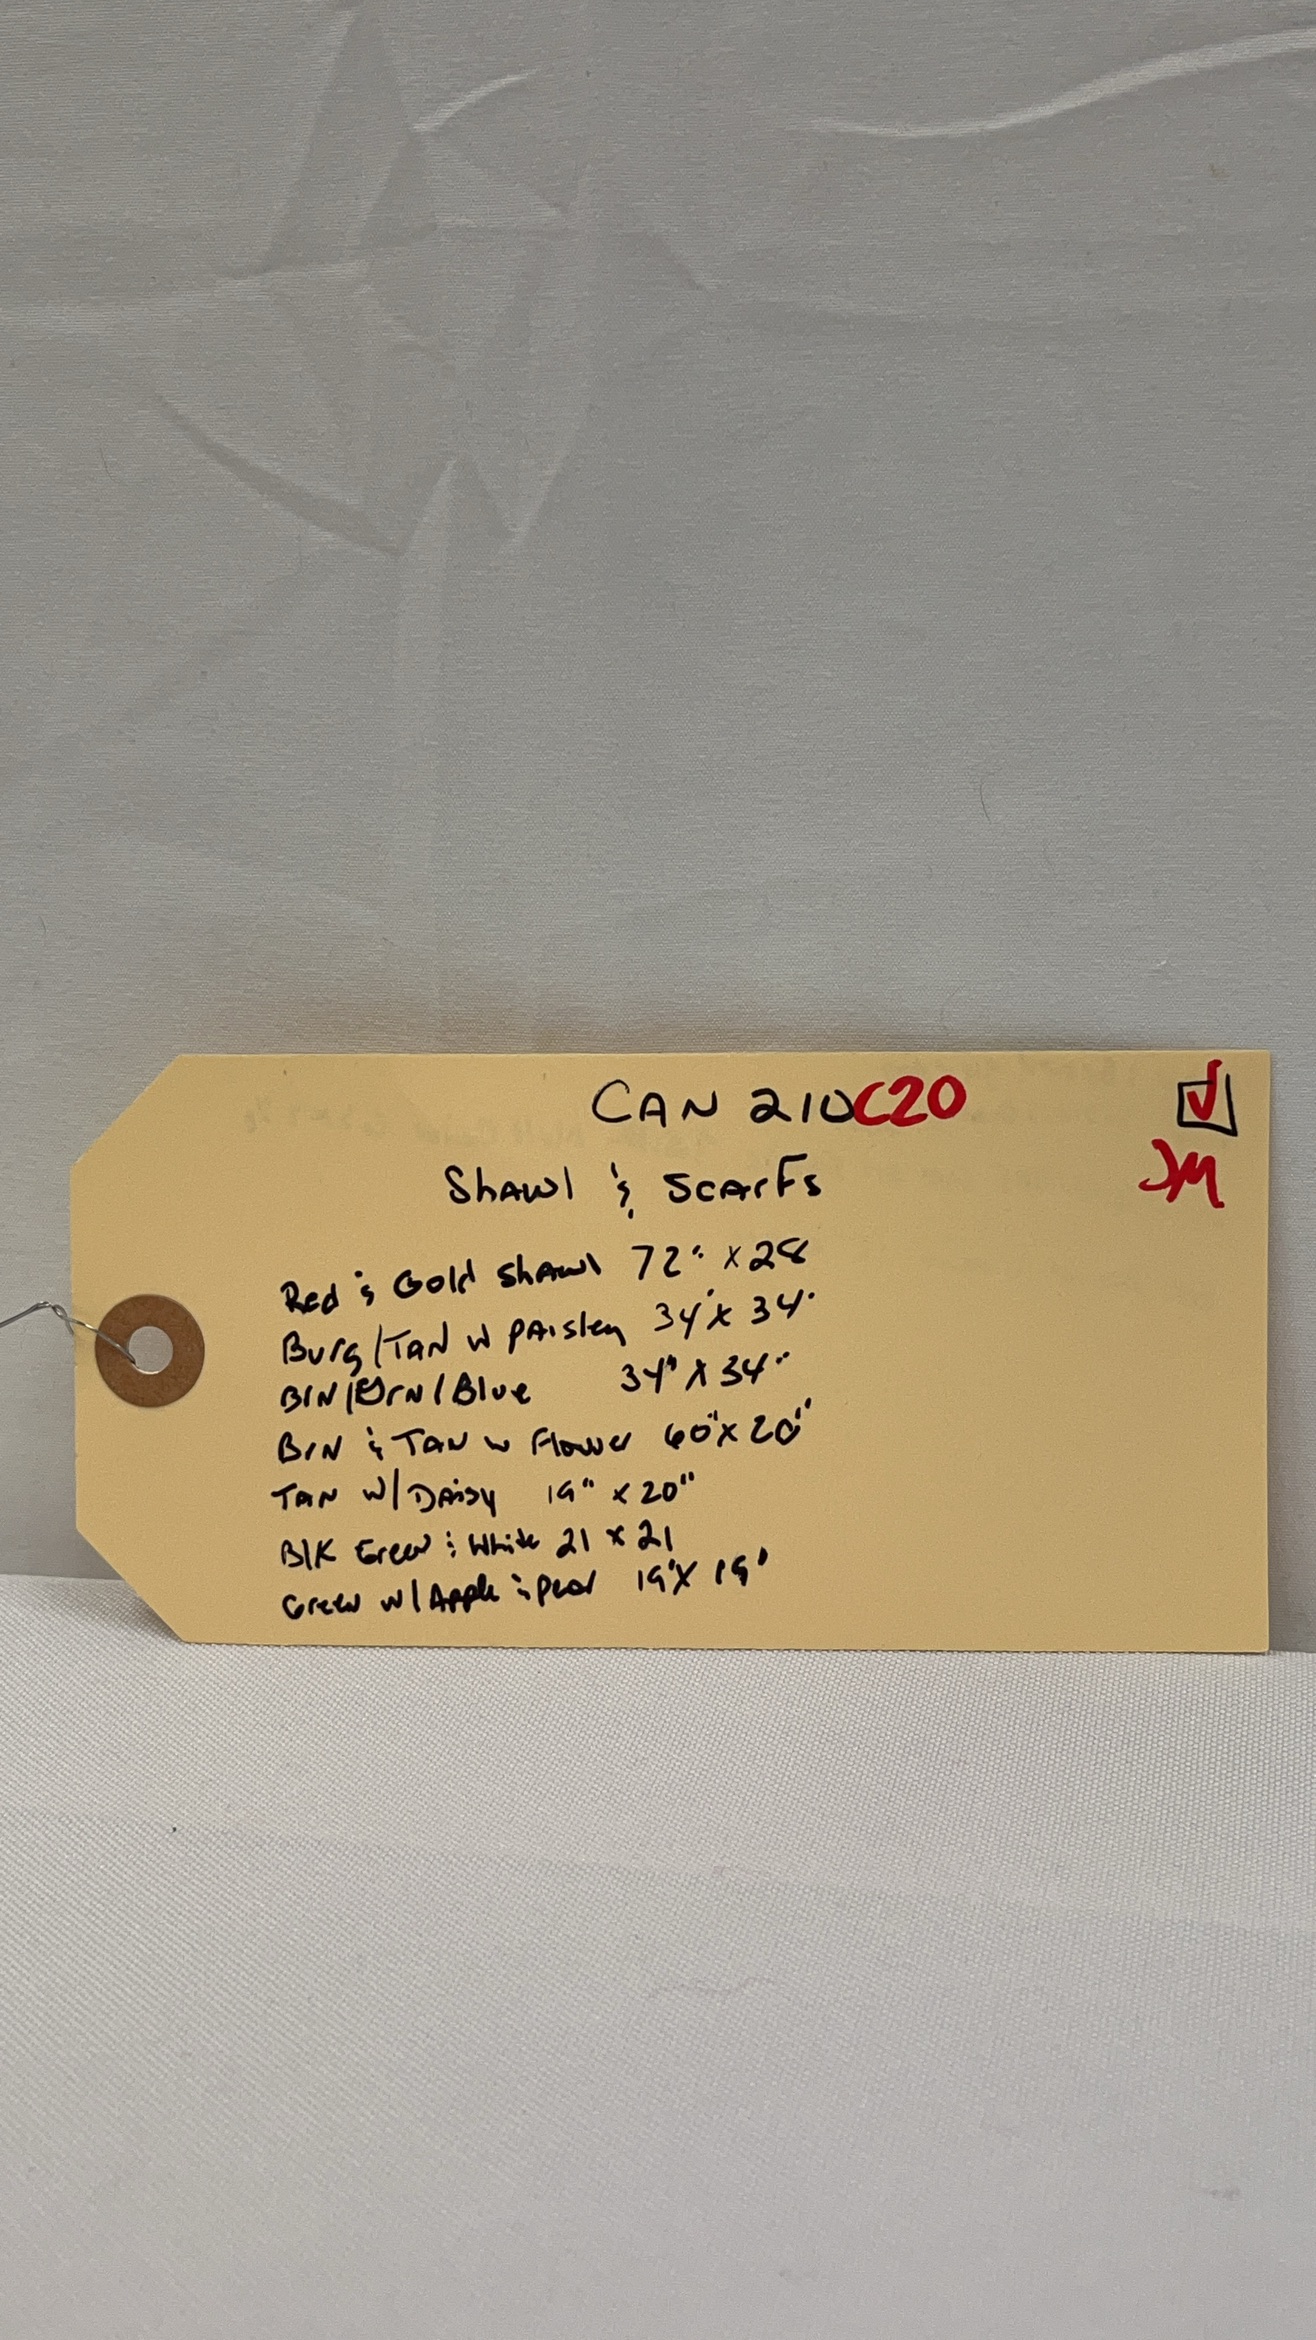 CAN 210C20
JM
Shawl & Scarfs
Red & Gold Shawl 72" x 28
Burg/TAN W PAisley 34" x 34"
BrN/GrN/Blue 34" x 34"
BrN & TAN w Flower 60" x 20"
TAN W/ DAisy 19" x 20"
BlK Green & White 21 x 21
Green w/ Apple & Pear 19" x 19"